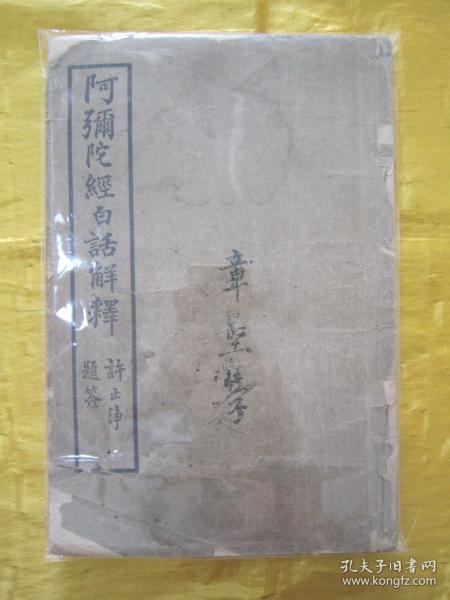 阿彌陀經白話解釋
許止淨
題簽
章
孔夫子旧书网
www.kongfz.com